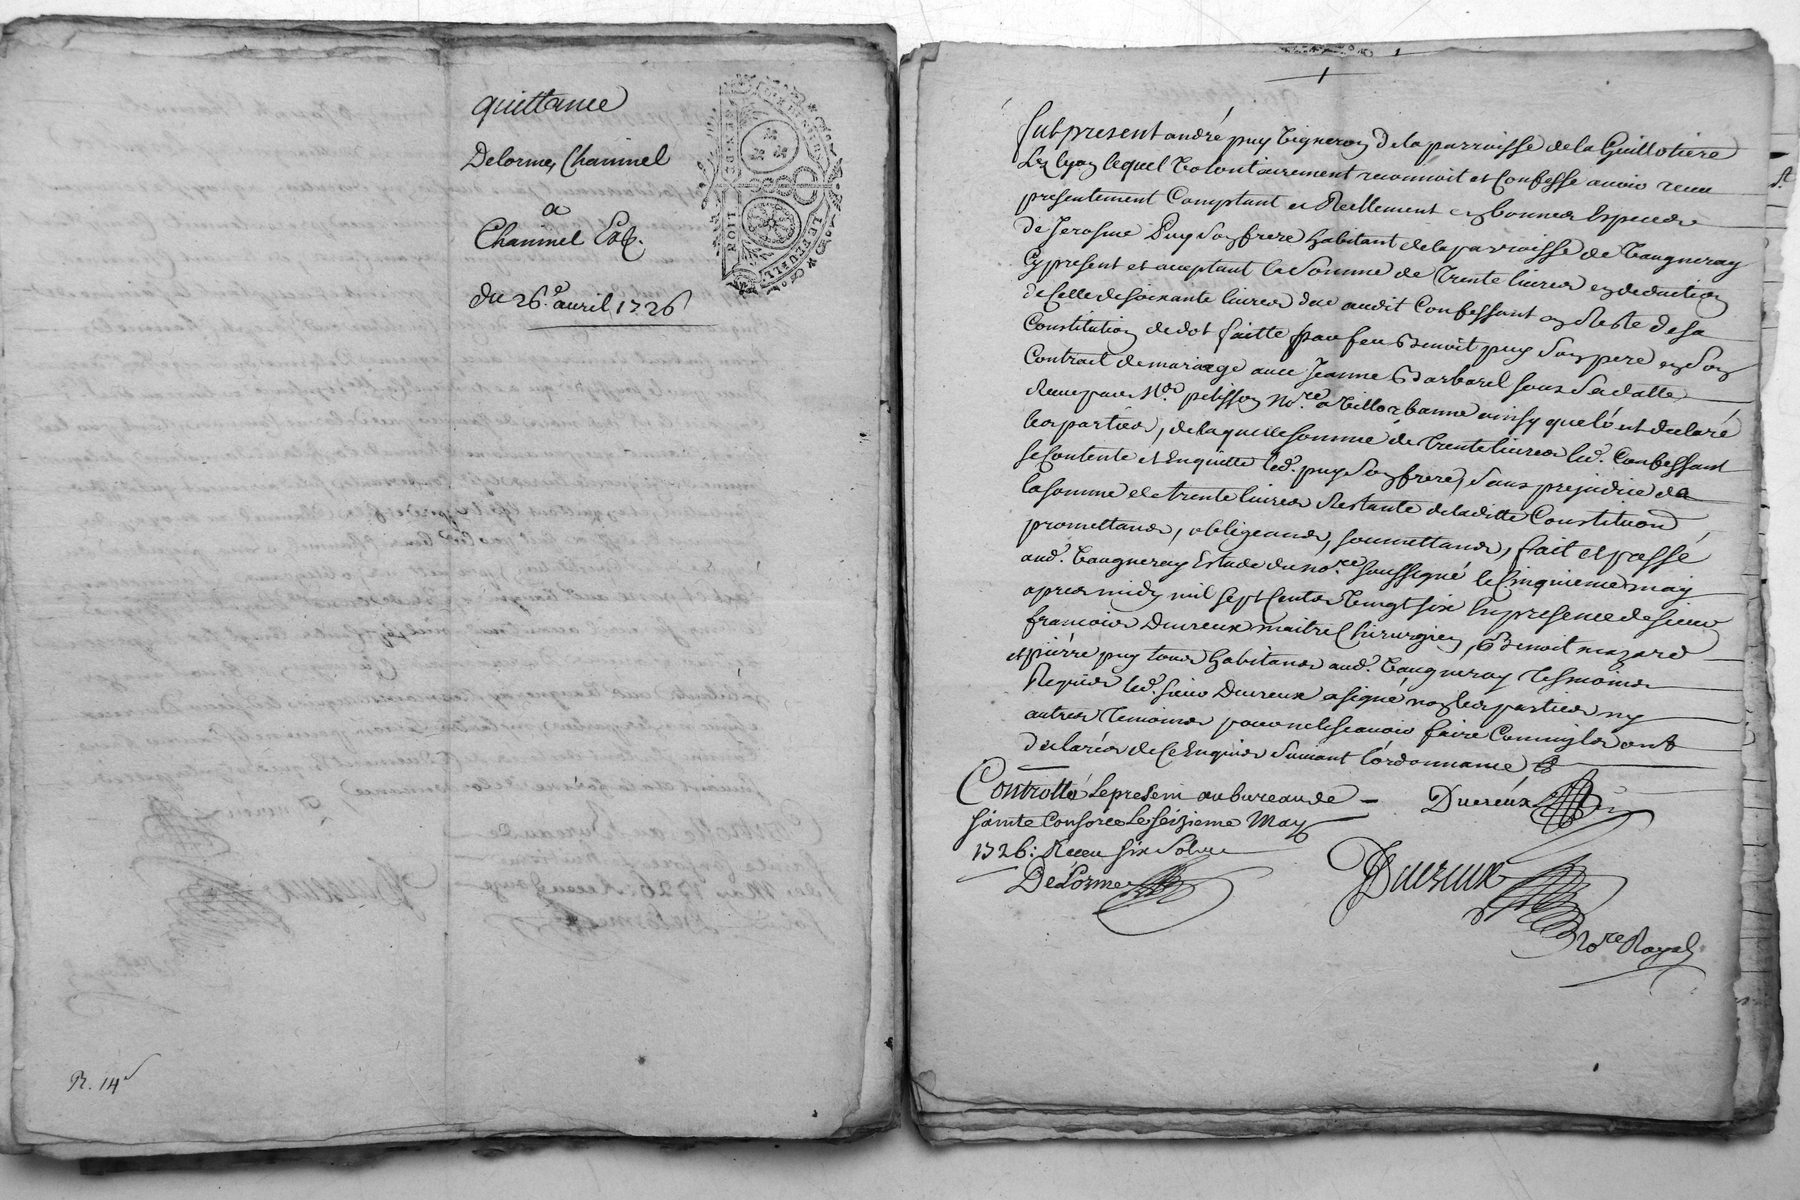 quittance
Delorme, Chaninel
a
Chaninel
du 26e. avril 1726
ROIT
LE FEUILLE
R. 14
fut present andré puy Vigneron de la parroisse de la Guillotiere
Lez lyon lequel Volontairement reconnoit et Confesse avoir receu
presentement Comptant et Reellement en bonnes Especes
de Jerosme Puy son frere habitant de la parroisse de Vaugneray
Cy present et acceptant la Somme de Trente livres en deduction
de Celle de soixante livres due audit Confessant en Reste de sa
Constitution de dot faitte par feu Benoit puy son pere en son
Contrait de mariage avec Jeanne Barbarel sous sa datte
Receu par Me. pelisson Nore. a Villorbanne ainsy que l'ont declaré
les parties, de laquelle somme de Trente livres led. Confessant
se Contente et En quitte led. puy son frere, sans prejudice de
la somme de trente livres Restante de laditte Constitution
promettans, obligeans, soumettans, fait et passé
aud. Vaugneray Estude du nore. soussigné le Cinquieme may
apres midy mil sept Cents Vingt six En presence de sieur
francois Ducreux maitre Chirurgien, Benoit mazard
et pierre puy tous habitans aud. Vaugneray Tesmoins
Requis led. sieur Ducreux a signé non les parties ny
autres Temoins pour ne le scavoir faire Comm'ils ont
declarés de Ce Enquis suivant l'ordonnance
Controllé Le present au bureau de
sainte Consorce Le seizieme May
1726: Receu six Sols
DeLorme
Ducreux
Ducreux
Nore Royal